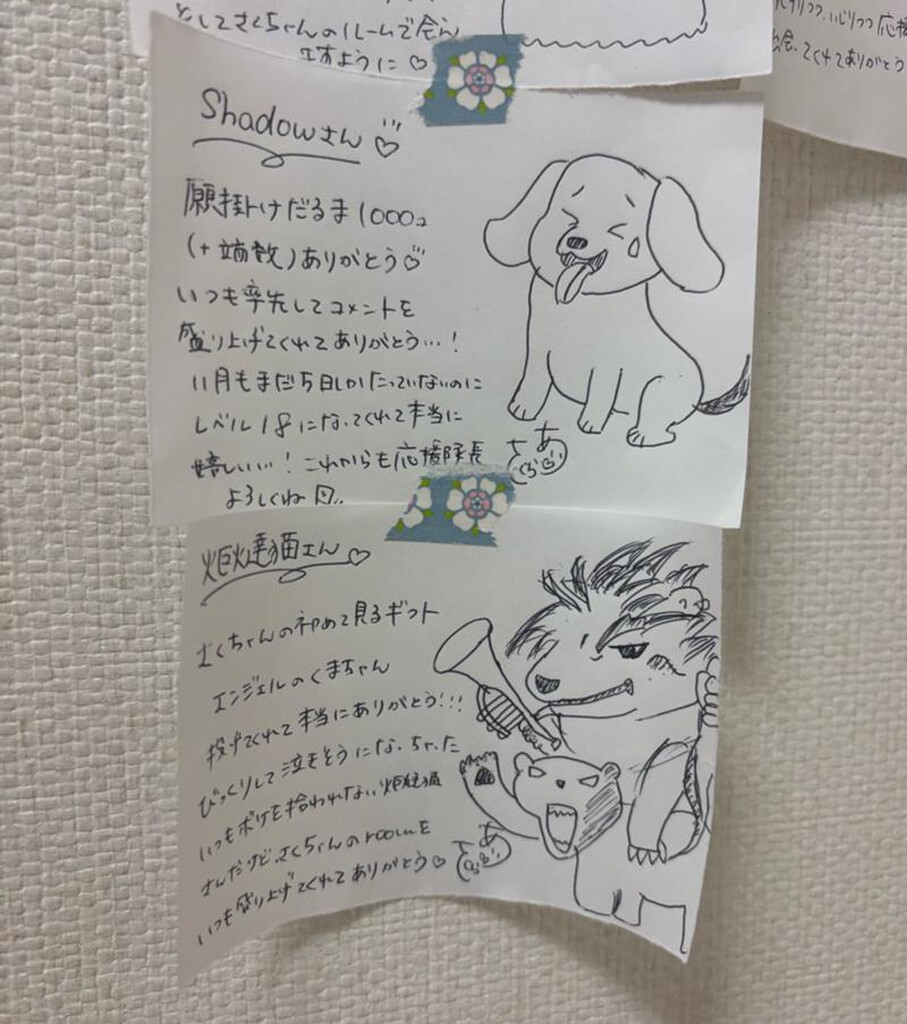 としてさくちゃんのルームで会え
ますように♡
応援
てくれてありがとう
Shadowさん♡
願掛けだるま1000コ
(+端数)ありがとう♡
いつも率先してコメントを
盛り上げてくれてありがとう…!
11月もまだ5日しかたっていないのに
レベル18になってくれて本当に
嬉しい…!これからも応援隊長
よろしくね
炬燵猫さん♡
さくちゃんの初めて見るギフト
エンジェルのくまちゃん
投げてくれて本当にありがとう!!!
びっくりして泣きそうになっちゃった
いつもボケを拾われない炬燵猫
さんだけど、さくちゃんのroomを
いつも盛り上げてくれてありがとう♡